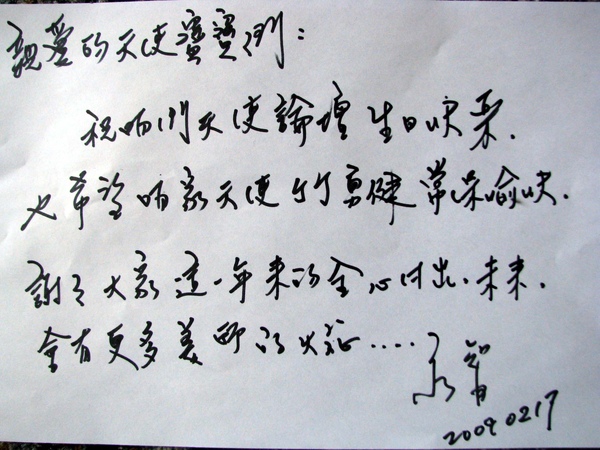 親愛的天使寶寶們：
祝咱们天使論壇生日快樂.
也希望咱家天使竹勇健常保愉快.
謝謝大家這一年来的全心付出.未来.
會有更多美所的火花.....
永智
20090217